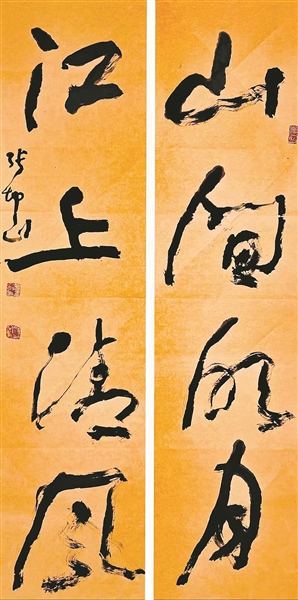 山间明月
江上清风
张坤山